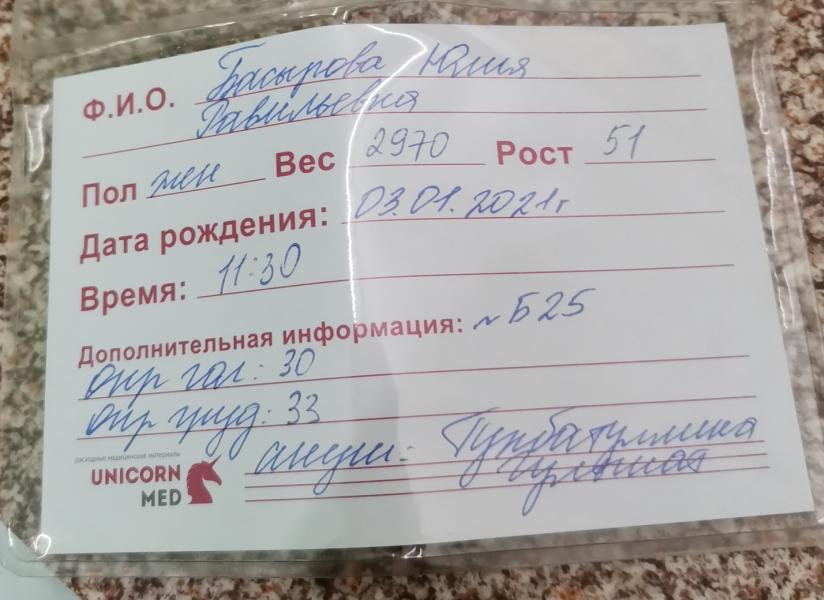 Ф.И.О. Басырова Юлия
Равильевна
Пол жен Вес 2970 Рост 51
Дата рождения: 03.01.2021г
Время: 11:30
Дополнительная информация: ~ Б25
окр гол: 30
окр груд: 33
расходные медицинские материалы
UNICORN
MED
акуш: